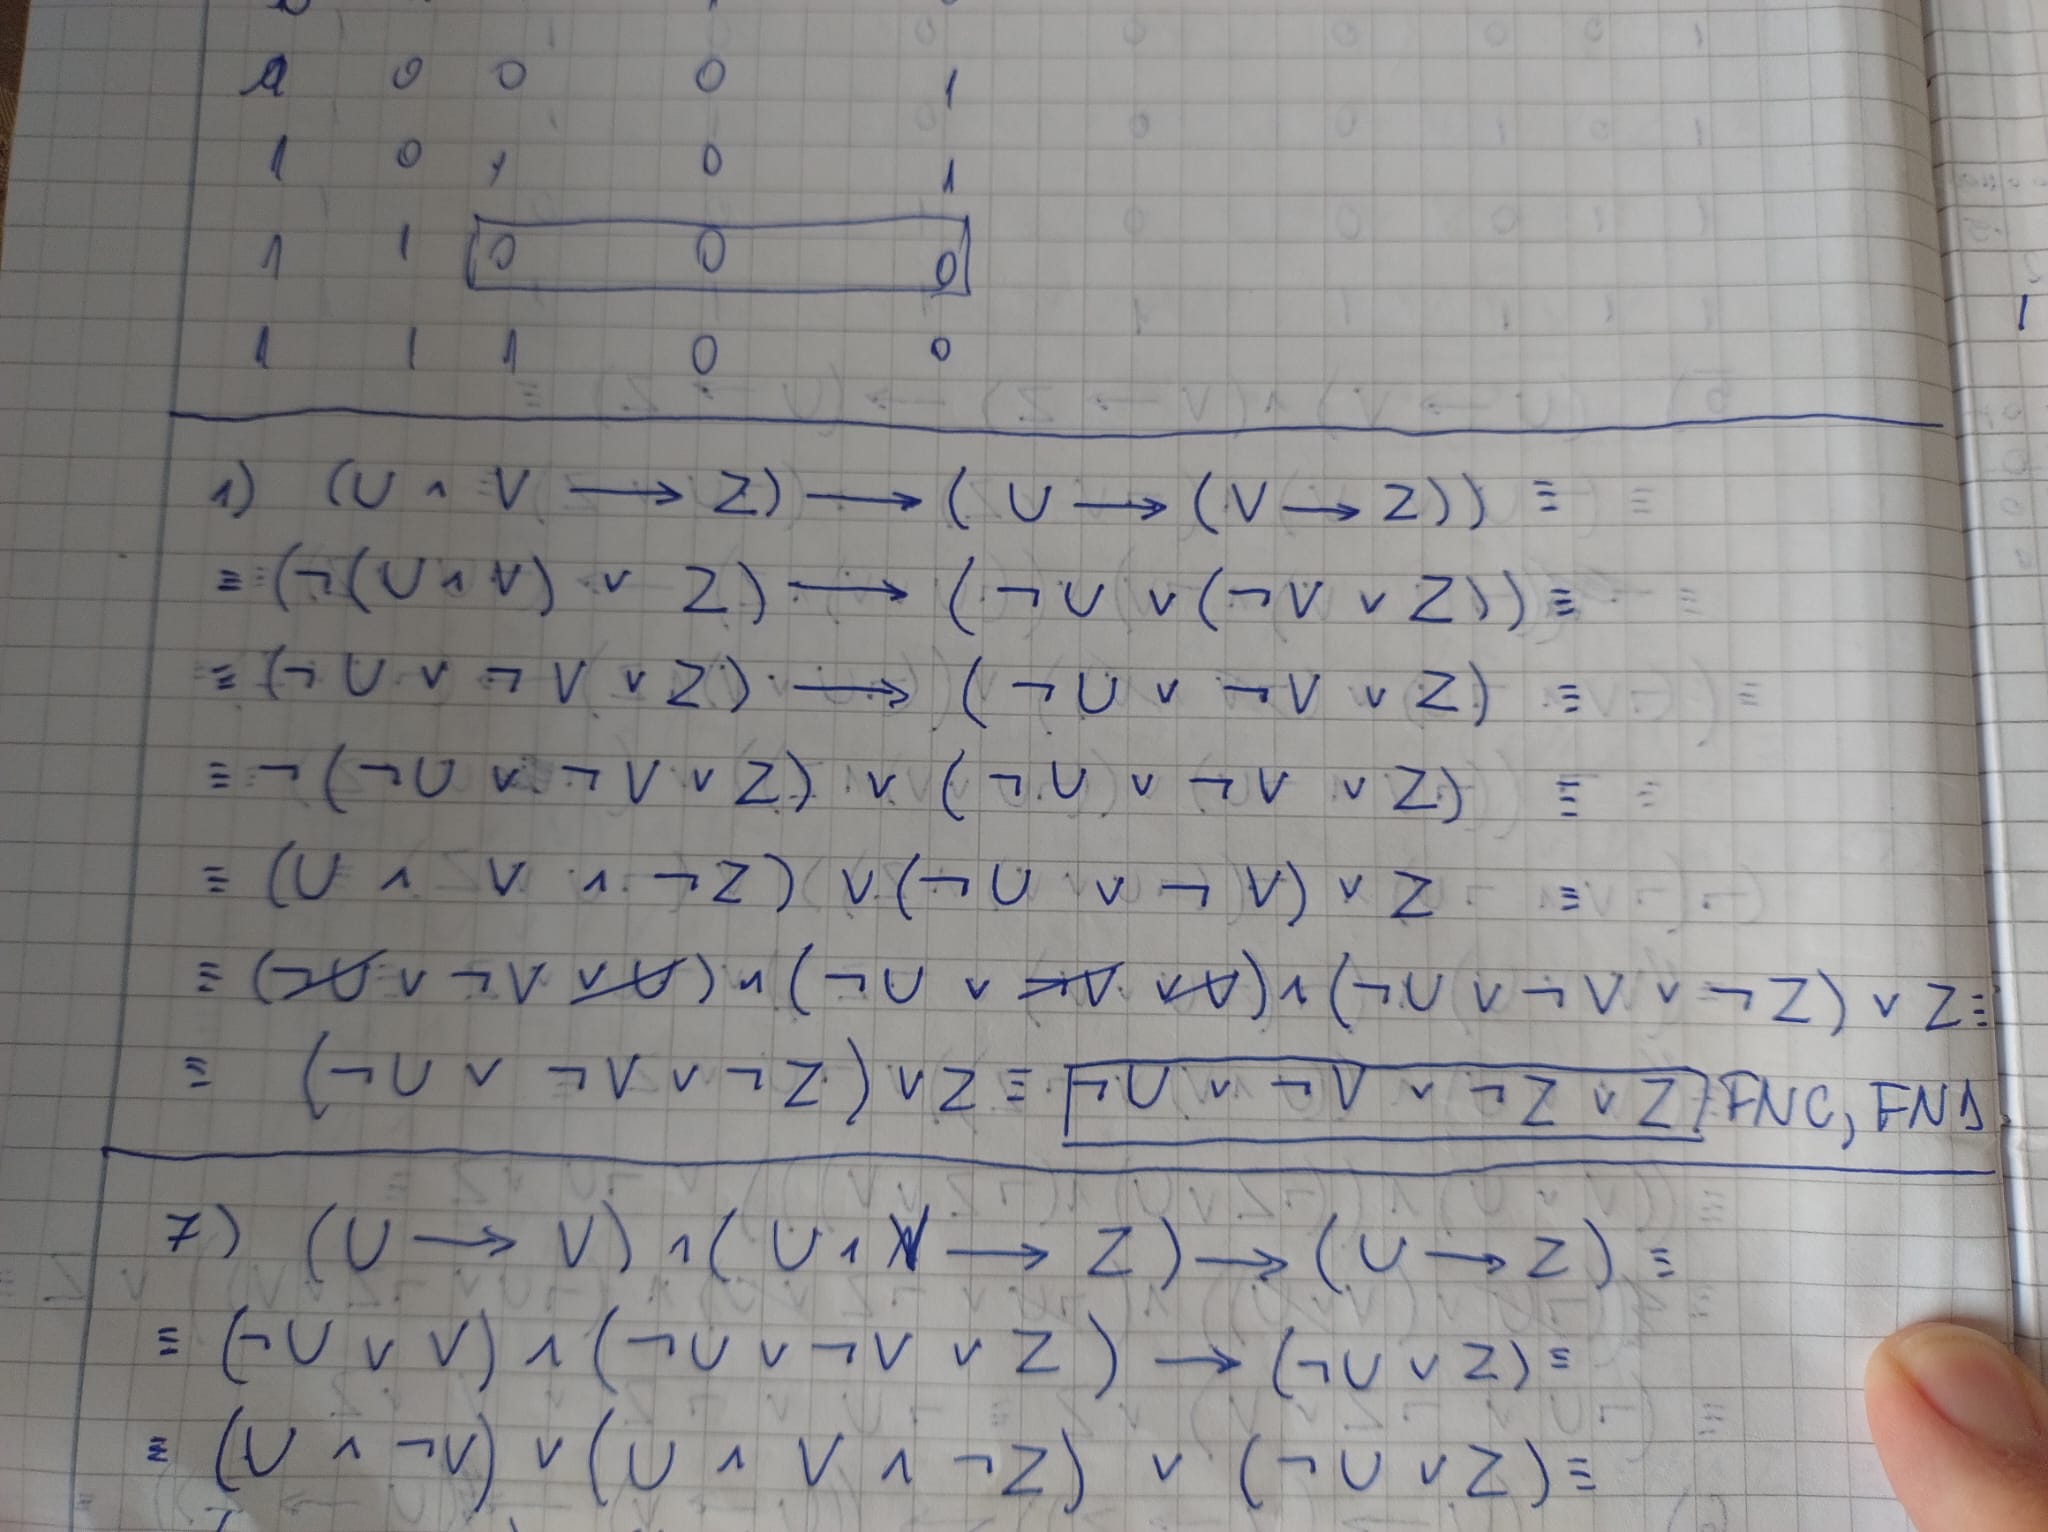 1 0 0 0 1
1 0 1 0 1
1 1 0 0 0
1 1 1 0 0
1) (U ∧ V → Z) → (U → (V → Z)) ≡
≡ (¬(U ∧ V) ∨ Z) → (¬U ∨ (¬V ∨ Z)) ≡
≡ (¬U ∨ ¬V ∨ Z) → (¬U ∨ ¬V ∨ Z) ≡
≡ ¬(¬U ∨ ¬V ∨ Z) ∨ (¬U ∨ ¬V ∨ Z) ≡
≡ (U ∧ V ∧ ¬Z) ∨ (¬U ∨ ¬V) ∨ Z ≡
≡ (¬U ∨ ¬V ∨ U) ∧ (¬U ∨ ¬V ∨ V) ∧ (¬U ∨ ¬V ∨ ¬Z) ∨ Z ≡
≡ (¬U ∨ ¬V ∨ ¬Z) ∨ Z ≡ ¬U ∨ ¬V ∨ ¬Z ∨ Z FNC, FND
7) (U → V) ∧ (U ∧ V → Z) → (U → Z) ≡
≡ (¬U ∨ V) ∧ (¬U ∨ ¬V ∨ Z) → (¬U ∨ Z) ≡
≡ (U ∧ ¬V) ∨ (U ∧ V ∧ ¬Z) ∨ (¬U ∨ Z) ≡